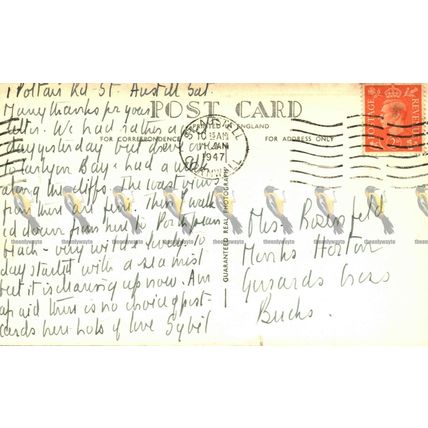 1 Poltair Rd. St. Austell Sat.
Many thanks for your
letter. We had rather a
day yesterday but drove over
to Carlyon Bay & had a walk
along the cliffs. The coast view
from there are fine. Then I walk
ed down from here to Porthpean
beach - very
day started with a sea mist
but it is clearing up now. Am
afraid there is no choice of post-
cards here lots of love Sybil
POST CARD
PRINTED IN ENGLAND
FOR CORRESPONDENCE
FOR ADDRESS ONLY
ST AUSTELL
10 15 AM
JAN
1947
CORNWALL
POSTAGE
REVENUE
GUARANTEED REAL PHOTOGRAPH
Mrs.
Monks Horton
Gerrards Cross
Bucks.
theonlywayto
theonlywayto
theonlywayto
theonlywayto
theonlywayto
theonlywayto